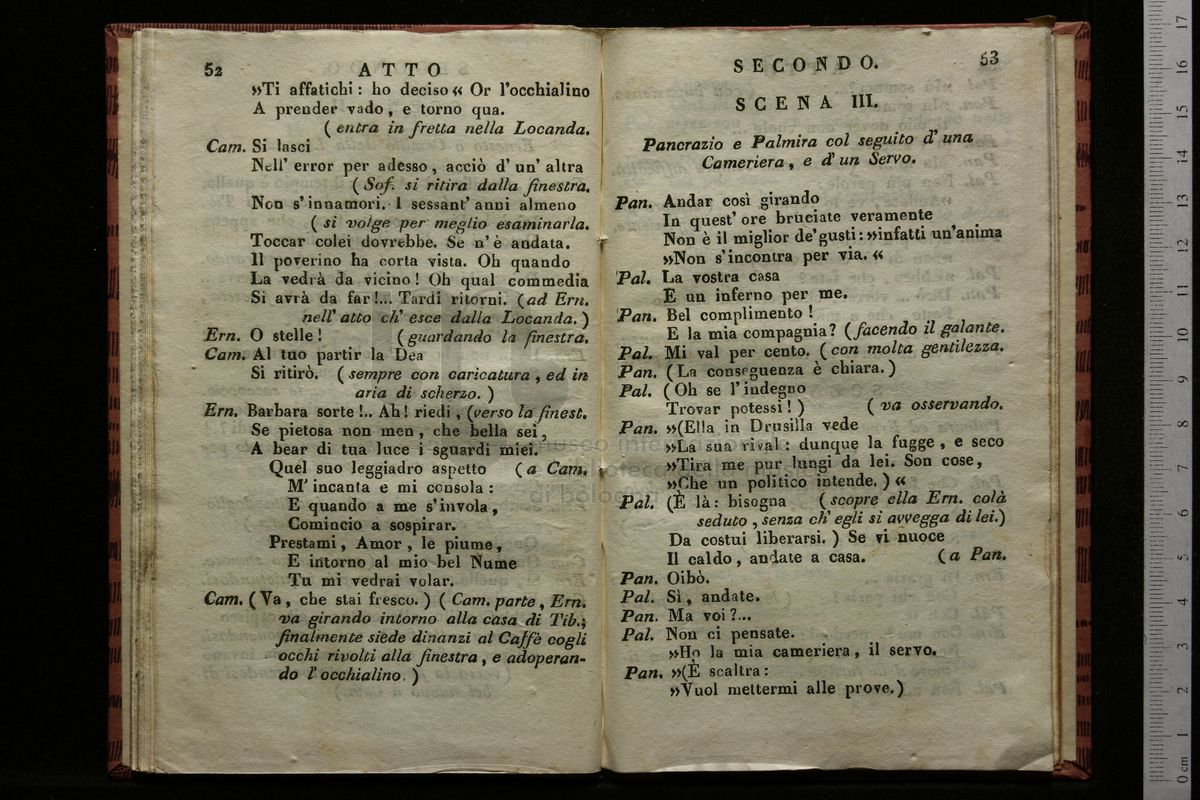 52
ATTO
»Ti affatichi: ho deciso« Or l'occhialino
A prender vado, e torno qua.
(entra in fretta nella Locanda.
Cam. Si lasci
Nell' error per adesso, acciò d' un' altra
(Sof. si ritira dalla finestra.
Non s'innamori. I sessant' anni almeno
(si volge per meglio esaminarla.
Toccar colei dovrebbe. Se n'è andata.
Il poverino ha corta vista. Oh quando
La vedrà da vicino! Oh qual commedia
Si avrà da far!... Tardi ritorni. (ad Ern.
nell' atto ch' esce dalla Locanda.)
Ern. O stelle! (guardando la finestra.
Cam. Al tuo partir la Dea
Si ritirò. (sempre con caricatura, ed in
aria di scherzo.)
Ern. Barbara sorte!.. Ah! riedi, (verso la finest.
Se pietosa non men, che bella sei,
A bear di tua luce i sguardi miei.
Quel suo leggiadro aspetto (a Cam.
M' incanta e mi consola:
E quando a me s'invola,
Comincio a sospirar.
Prestami, Amor, le piume,
E intorno al mio bel Nume
Tu mi vedrai volar.
Cam. (Va, che stai fresco.) (Cam. parte, Ern.
va girando intorno alla casa di Tib.;
finalmente siede dinanzi al Caffè cogli
occhi rivolti alla finestra, e adoperan-
do l'occhialino.)
SECONDO.
53
SCENA III.
Pancrazio e Palmira col seguito d' una
Cameriera, e d' un Servo.
Pan. Andar così girando
In quest' ore bruciate veramente
Non è il miglior de' gusti: »infatti un'anima
»Non s'incontra per via. «
Pal. La vostra casa
E un inferno per me.
Pan. Bel complimento!
E la mia compagnia? (facendo il galante.
Pal. Mi val per cento. (con molta gentilezza.
Pan. (La conseguenza è chiara.)
Pal. (Oh se l'indegno
Trovar potessi!) (va osservando.
Pan. »(Ella in Drusilla vede
»La sua rival: dunque la fugge, e seco
»Tira me pur lungi da lei. Son cose,
»Che un politico intende.) «
Pal. (È là: bisogna (scopre ella Ern. colà
seduto, senza ch' egli si avvegga di lei.)
Da costui liberarsi.) Se vi nuoce
Il caldo, andate a casa. (a Pan.
Pan. Oibò.
Pal. Sì, andate.
Pan. Ma voi?...
Pal. Non ci pensate.
»Ho la mia cameriera, il servo.
Pan. »(È scaltra:
»Vuol mettermi alle prove.)
0 cm 1 2 3 4 5 6 7 8 9 10 11 12 13 14 15 16 17